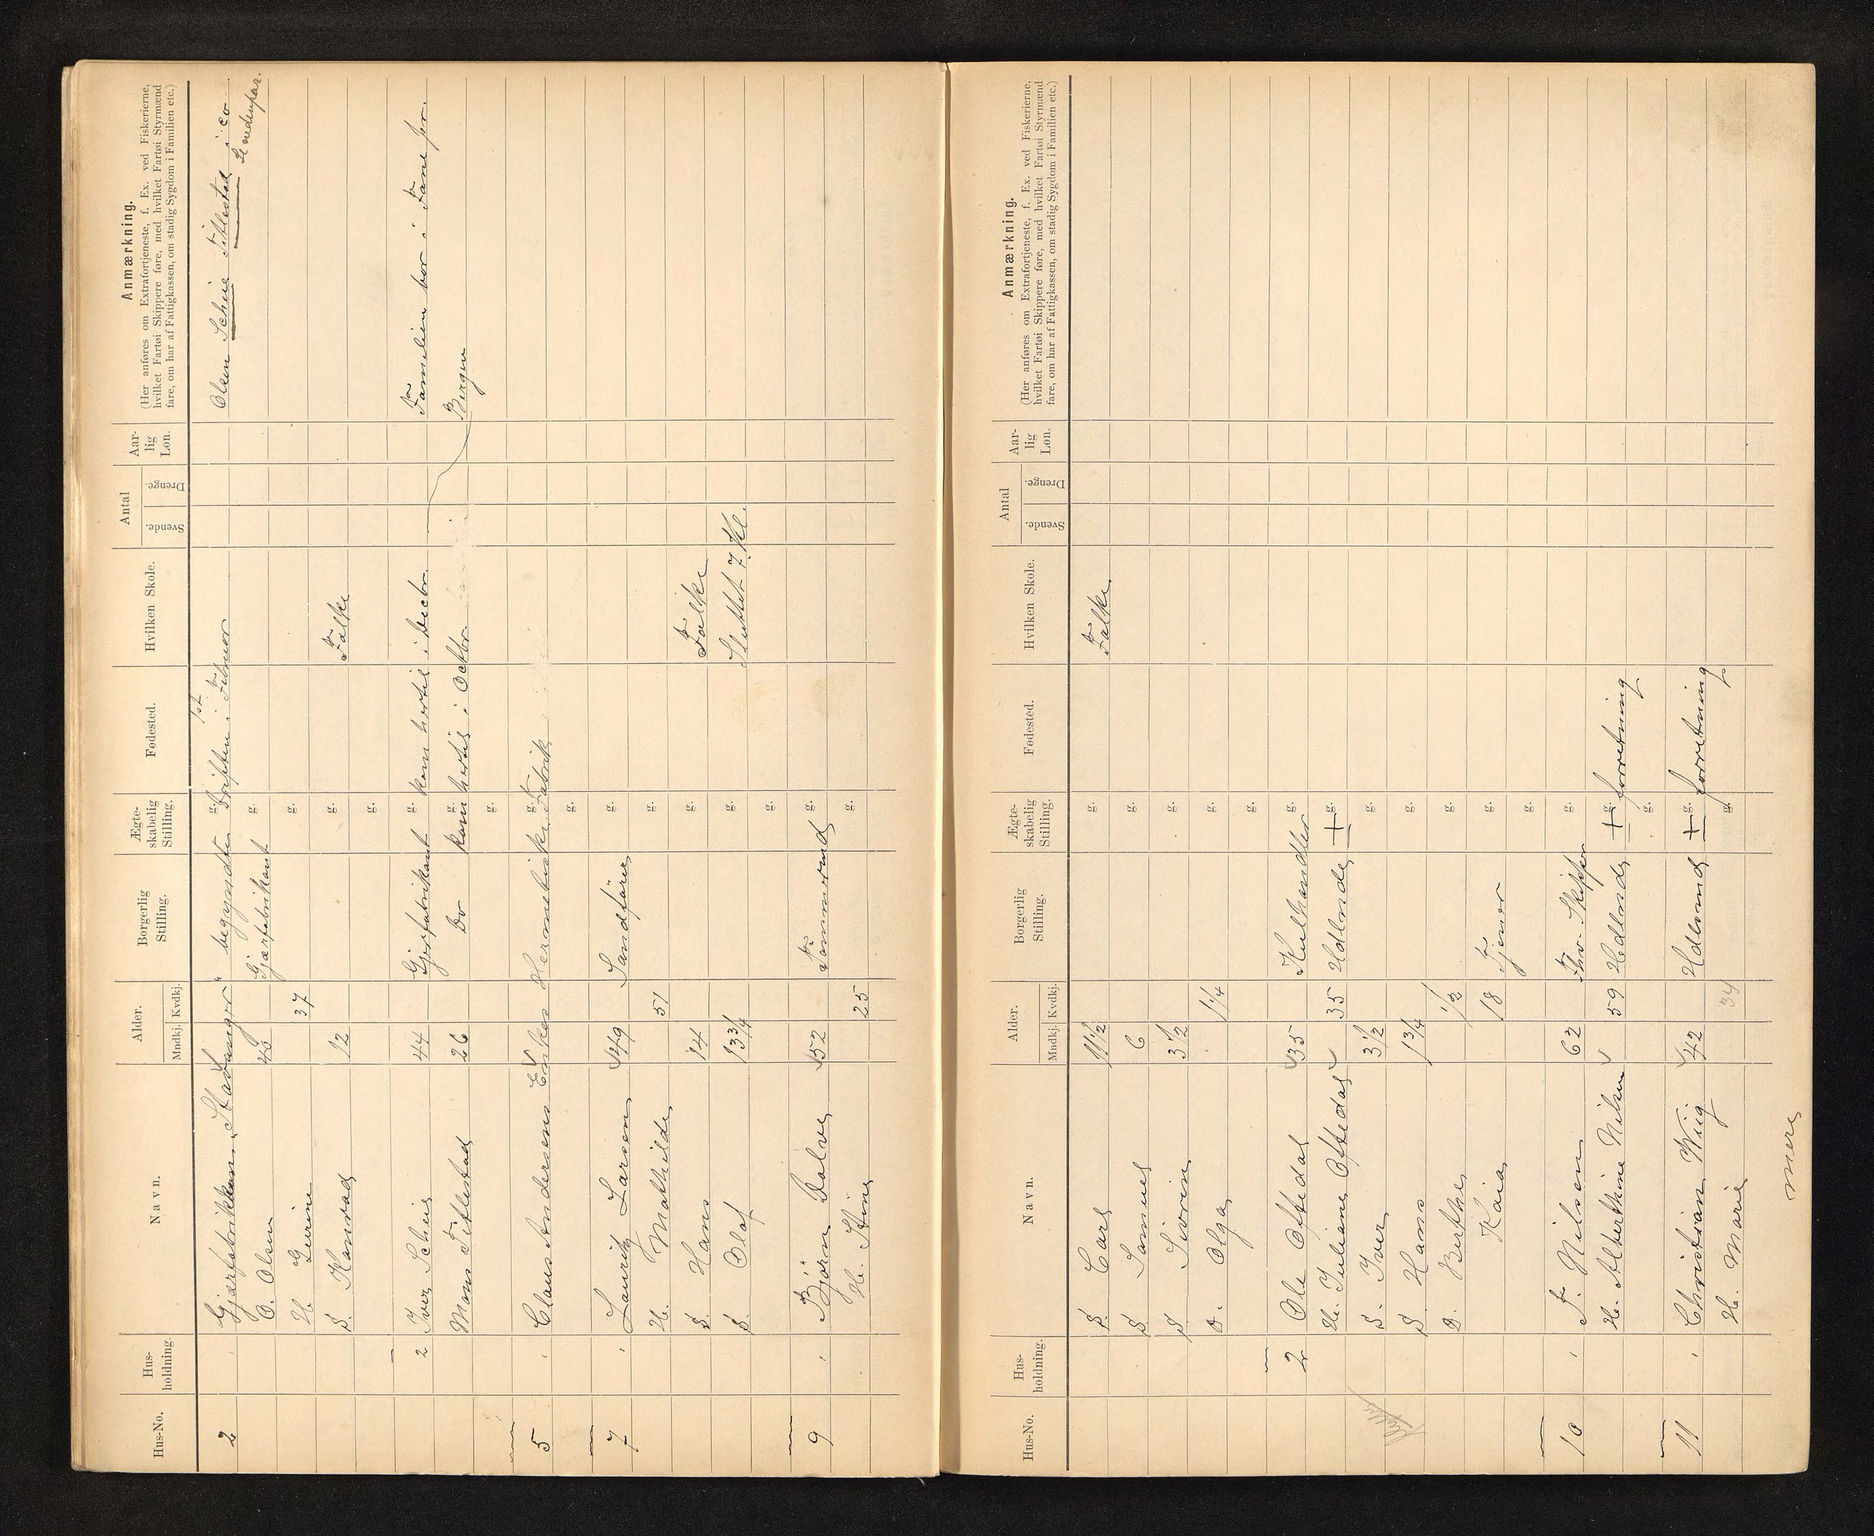 Hus-No. Hus-holdning. Navn. Alder. Mndkj. Kvdkj. Borgerlig Stilling. Ægte-skabelig Stilling. Fødested. Hvilken Skole. Antal Svende. Drenge. Aar-lig Løn. Anmærkning.
(Her anføres om Extrafortjeneste, f. Ex. ved Fiskerierne,
hvilket Fartøi Skippere føre, med hvilket Fartøi Styrmænd
fare, om har af Fattigkassen, om stadig Sygdom i Familien etc.)
2 Gjærfabrikken „Stavanger“ begyndte Driften i 1st Februar Olsen Scheie Fitlestad i co
O. Olsen 40 Gjærfabrikant g.
H. Gurine 37 g.
S. Konrad 12 g. Folke
g.
2 Iver Scheie 44 Gjærfabrikant g. kom hertil i Decbr. Familien bor i Fane pr.
Mons Fitlestad 26 Do g. kom hertil i Octbr Bergen
g.
5 Claus Andersens Enkes Hermetiske Fabrik g.
g.
7 Lauritz Larsen 49 Sandfører g.
H. Mathilde 51 g.
S. Hans 14 g. Folke
S. Olaf 13 3/4 g. Sluttet 7. Kl.
g.
9 Bjørn Dalve 52 Tømmermd g.
H. Stine 25 g.
Hus-No. Hus-holdning. Navn. Alder. Mndkj. Kvdkj. Borgerlig Stilling. Ægte-skabelig Stilling. Fødested. Hvilken Skole. Antal Svende. Drenge. Aar-lig Løn. Anmærkning.
(Her anføres om Extrafortjeneste, f. Ex. ved Fiskerierne,
hvilket Fartøi Skippere føre, med hvilket Fartøi Styrmænd
fare, om har af Fattigkassen, om stadig Sygdom i Familien etc.)
S. Carl 11 1/2 g. Folke
S. Samuel 6 g.
S. Sivrin 3 1/2 g.
D. Olga 1 1/4 g.
g.
2 Ole Oftedal 35 Kulhandler g.
H. Juliane Oftedal 35 Hdlnde + g.
S. Iver 3 1/2 g.
S. Hans 1 3/4 g.
D. Berthe 1/2 g.
Kaia 18 Tjener g.
g.
10 F. Nilsen 62 Fhv. Skipper g.
H. Alberthine Nilsen 59 Hdlnde + g. forretning
g.
11 Christian Wiig 42 Hdlsmd + g. forretning
H. Marie 34 g.
mere